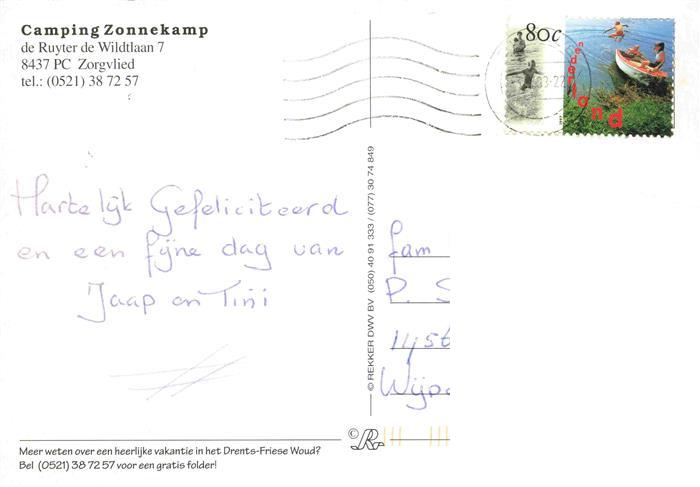 Camping Zonnekamp
de Ruyter de Wildtlaan 7
8437 PC Zorgvlied
tel.: (0521) 38 72 57
80c
nederland
Hartelijk Gefeliciteerd
en een fijne dag van
Jaap en Tini
© REKKER DWV BV (050) 40 91 333 / (077) 30 74 849
fam
P. S
1456
Meer weten over een heerlijke vakantie in het Drents-Friese Woud?
Bel (0521) 38 72 57 voor een gratis folder!
©R